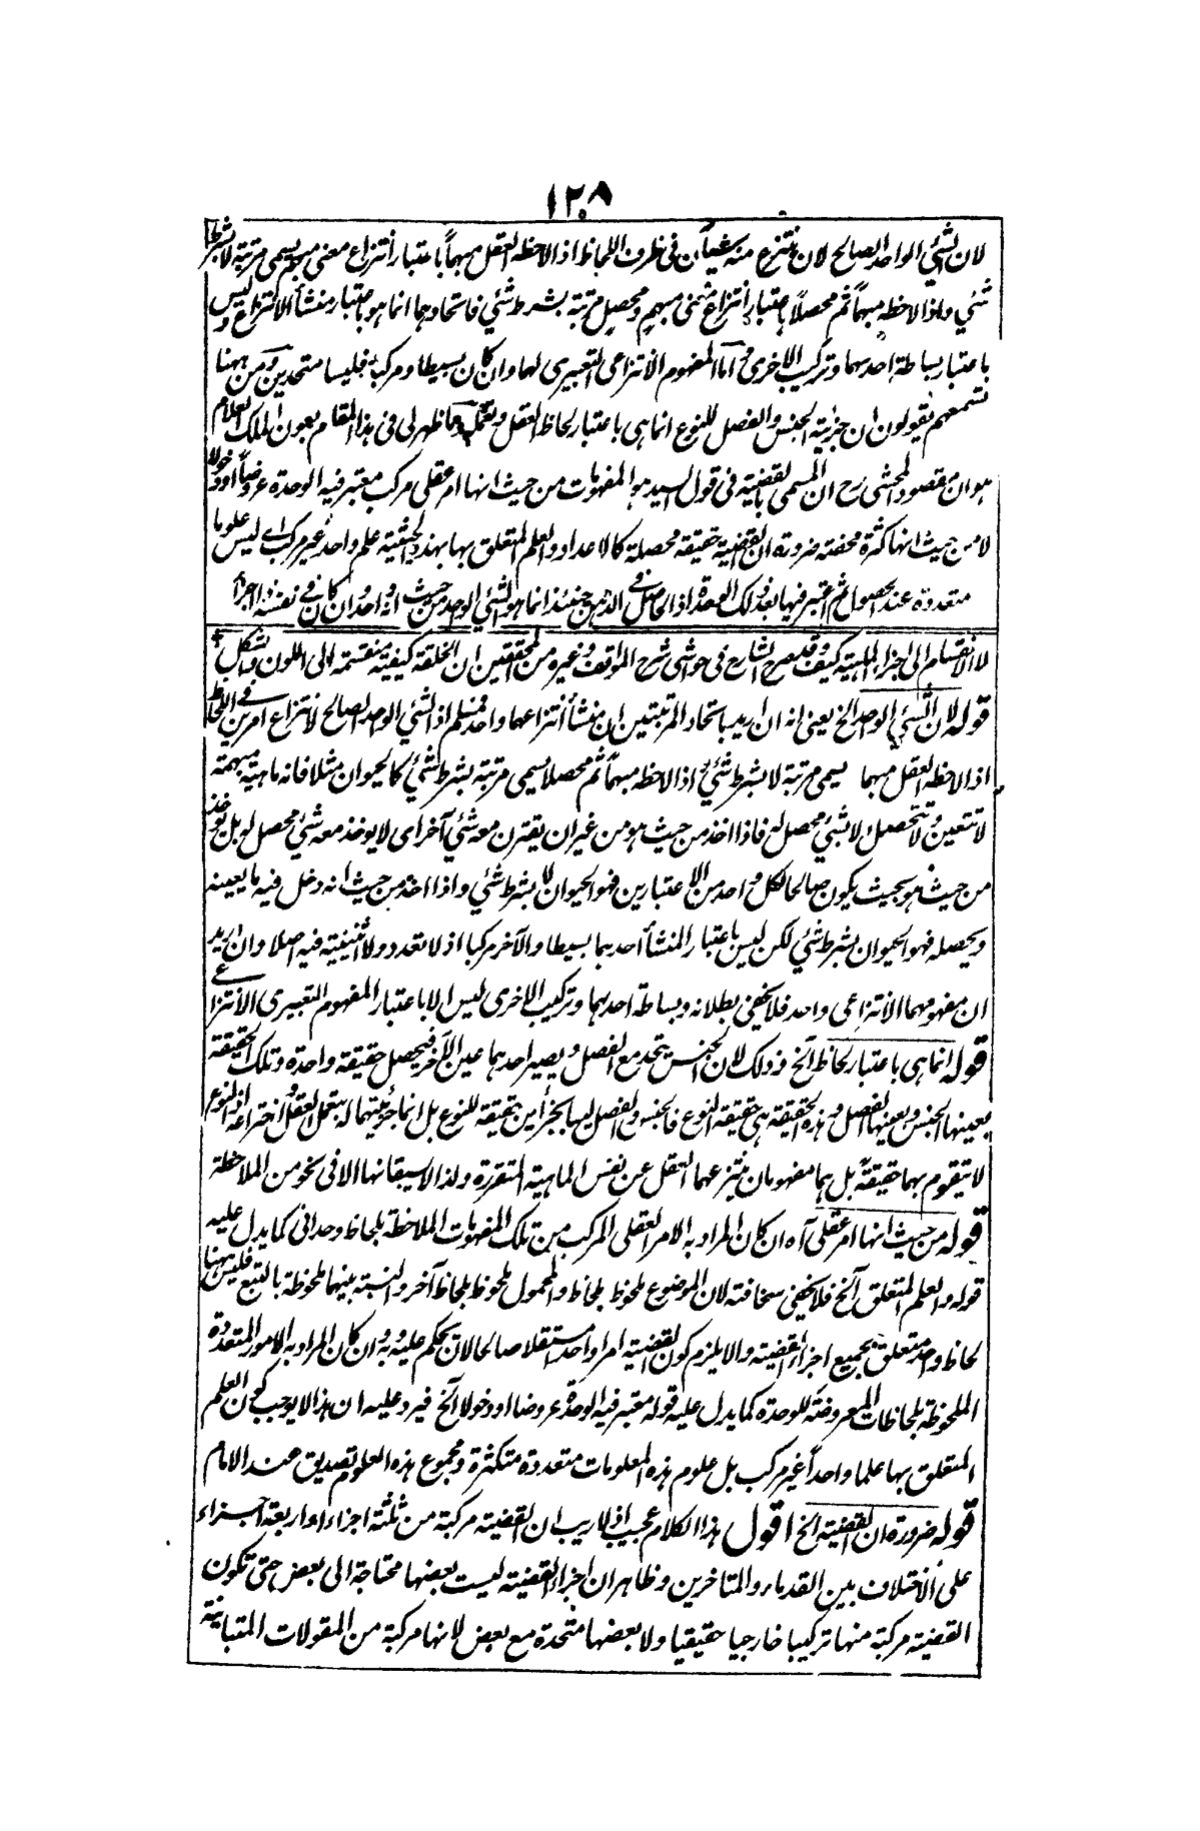 ١٢٨
لان الشئ الواحد الصالح لان ينتزع منه شيئان فى ظرف اللحاظ اذا لاحظه العقل مبهماً باعتبار انتزاع معنى مبهم يسمى مرتبة لا بشرط
شئ واذا لاحظه مبهماً ثم محصلاً باعتبار انتزاع معنى مبهم ومحصل مرتبة بشرط شئ فاتحادهما انما هو باعتبار منشأ الانتزاع وليس
باعتبار بساطة احدهما وتركيب الاخرى واما المفهوم الانتزاعى التعبيرى لهما وان كان بسيطا ومركبا فليسا متحدين ومن ههنا
تسمعهم يقولون ان جزئية الجنس والفصل للنوع انما هى باعتبار لحاظ العقل وتعمله وما ظهر لى فى هذا المقام بعون الملك العلام
هو ان مقصود المحشى رح ان المسمى بالقضية فى قول السيد هو المفهومات من حيث انها امر عقلى مركب معتبر فيه الوحدة عروضاً او دخولا
لا من حيث انها كثرة محضة ضرورة ان القضية حقيقة محصلة كالاعداد والعلم المتعلق بها بهذه الحيثية علم واحد غير مركب اى ليس علوما
متعددة عند الحصول ثم اعتبر فيها بعد ذلك الوحدة اذ الحاصل فى الذهن حينئذ انما هو الشئ الواحد من حيث انه واحد وان كان فى نفسه ذا اجزاء
لا الانقسام الى اجزاء الماهية كيف وقد صرح الشارح فى حواشى شرح المواقف وغيره من المحققين ان الخلقة كيفية منقسمة الى اللون والشكل
قوله لان الشئ الواحد الخ يعنى انه ان اريد باتحاد المرتبتين ان منشأ انتزاعهما واحد فمسلم اذ الشئ الواحد الصالح لانتزاع امرين فى اللحاظ
اذا لاحظه العقل مبهما يسمى مرتبة لا بشرط شئ واذا لاحظه مبهماً ثم محصلا يسمى مرتبة بشرط شئ كالحيوان مثلا فانه ماهية مبهمة
لا تتعين ولا تتحصل الا بشئ محصل له فاذا اخذ من حيث هو من غير ان يقترن معه شئ آخر اى لا يوخذ معه شئ محصل له بل يوخذ
من حيث هو بحيث يكون صالحا لكل واحد من الاعتبارين فهو الحيوان لا بشرط شئ واذا اخذ من حيث انه دخل فيه ما يعينه
ويحصله فهو الحيوان بشرط شئ لكن ليس باعتبار المنشأ احدهما بسيطا والآخر مركبا اذ لا تعدد ولا اثنينية فيه اصلا وان اريد
ان مفهومهما الانتزاعى واحد فلا يخفى بطلانه وبساطة احدهما وتركيب الاخرى ليس الا باعتبار المفهوم التعبيرى الانتزاعى
قوله انما هى باعتبار لحاظ الخ وذلك لان الجنس يتحد مع الفصل ويصير احدهما عين الآخر فيحصل حقيقة واحدة وتلك الحقيقة
بعينها الجنس وبعينها الفصل وهذه الحقيقة هى حقيقة النوع فالجنس والفصل ليسا بجزأين حقيقة للنوع بل انما جزئيتهما له بتعمل العقل واختراعه اذ النوع
لا يتقوم بهما حقيقة بل هما مفهومان ينتزعهما العقل عن نفس الماهية المتقررة ولذا لا يسبقانها الا فى نحو من الملاحظة
قوله من حيث انها امر عقلى آه ان كان المراد به الامر العقلى المركب من تلك المفهومات الملاحظة بلحاظ وحدانى كما يدل عليه
قوله والعلم المتعلق الخ فلا يخفى سخافته لان الموضوع ملحوظ بلحاظ والمحمول ملحوظ بلحاظ آخر والنسبة بينهما ملحوظة بالتبع فليس ههنا
لحاظ واحد متعلق بجميع اجزاء القضية والا يلزم كون القضية امرا واحدا مستقلا صالحا لان يحكم عليه وبه وان كان المراد به الامور المتعددة
الملحوظة بلحاظات المعروضة للوحدة كما يدل عليه قوله معتبر فيه الوحدة عروضا او دخولا الخ فيرد عليه ان هذا لا يوجب كون العلم
المتعلق بها علما واحداً غير مركب بل علوم هذه المعلومات متعددة متكثرة ومجموع هذه العلوم تصديق عند الامام
قوله ضرورة ان القضية الخ اقول هذا الكلام عجيب اذ لا ريب ان القضية مركبة من ثلثة اجزاء او اربعة اجزاء
على الاختلاف بين القدماء والمتاخرين وظاهر ان اجزاء القضية ليست بعضها محتاجة الى بعض حتى تكون
القضية مركبة منها تركيبا خارجيا حقيقيا ولا بعضها متحدة مع بعض لانها مركبة من المقولات المتباينة